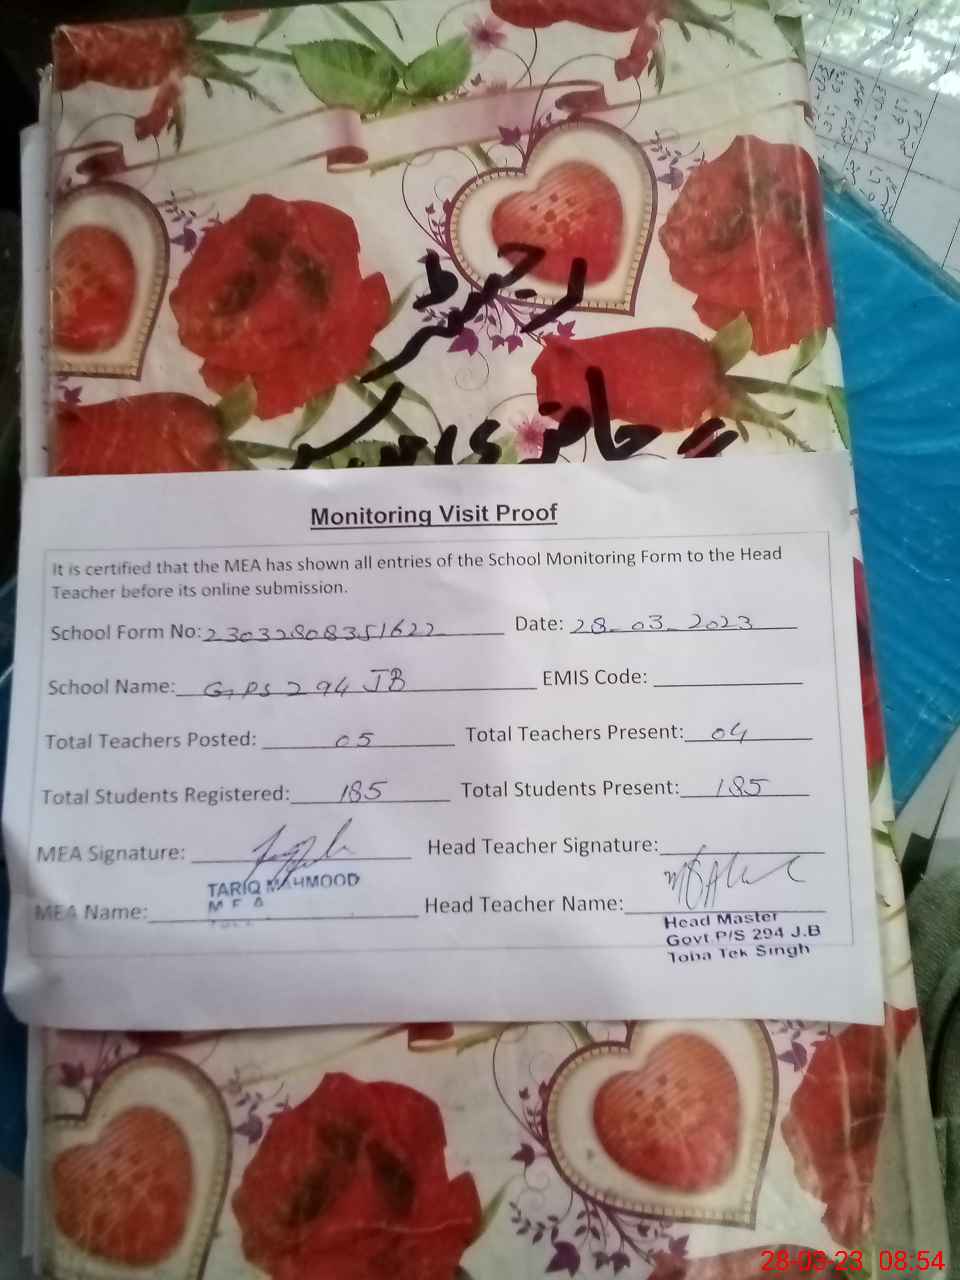 رجسٹر
حاضری
Monitoring Visit Proof
It is certified that the MEA has shown all entries of the School Monitoring Form to the Head
Teacher before its online submission.
School Form No: 23032808351622 Date: 28-03-2023
School Name: GPS 294 JB EMIS Code:
Total Teachers Posted: 05 Total Teachers Present: 04
Total Students Registered: 185 Total Students Present: 185
MEA Signature: Head Teacher Signature:
TARIQ MAHMOOD
M E A
MEA Name: Head Teacher Name:
Head Master
Govt P/S 294 J.B
Toba Tek Singh
28-03-23 08:54